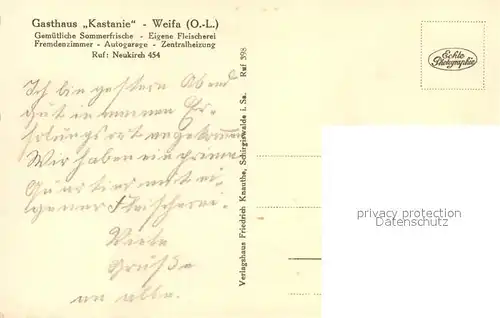 Gasthaus „Kastanie" - Weifa (O.-L.)
Gemütliche Sommerfrische - Eigene Fleischerei
Fremdenzimmer - Autogarage - Zentralheizung
Ruf: Neukirch 454
Ich bin gestern Abend
gut in meinem Er-
holungsort angekommen
Wir haben ein prima
Quartier mit ei-
gener Fleischerei.
Viele
Grüße
an alle.
Verlagshaus Friedrich Knauthe, Schirgiswalde i. Sa. Ruf 398
Echte
Photographie
privacy protection
Datenschutz